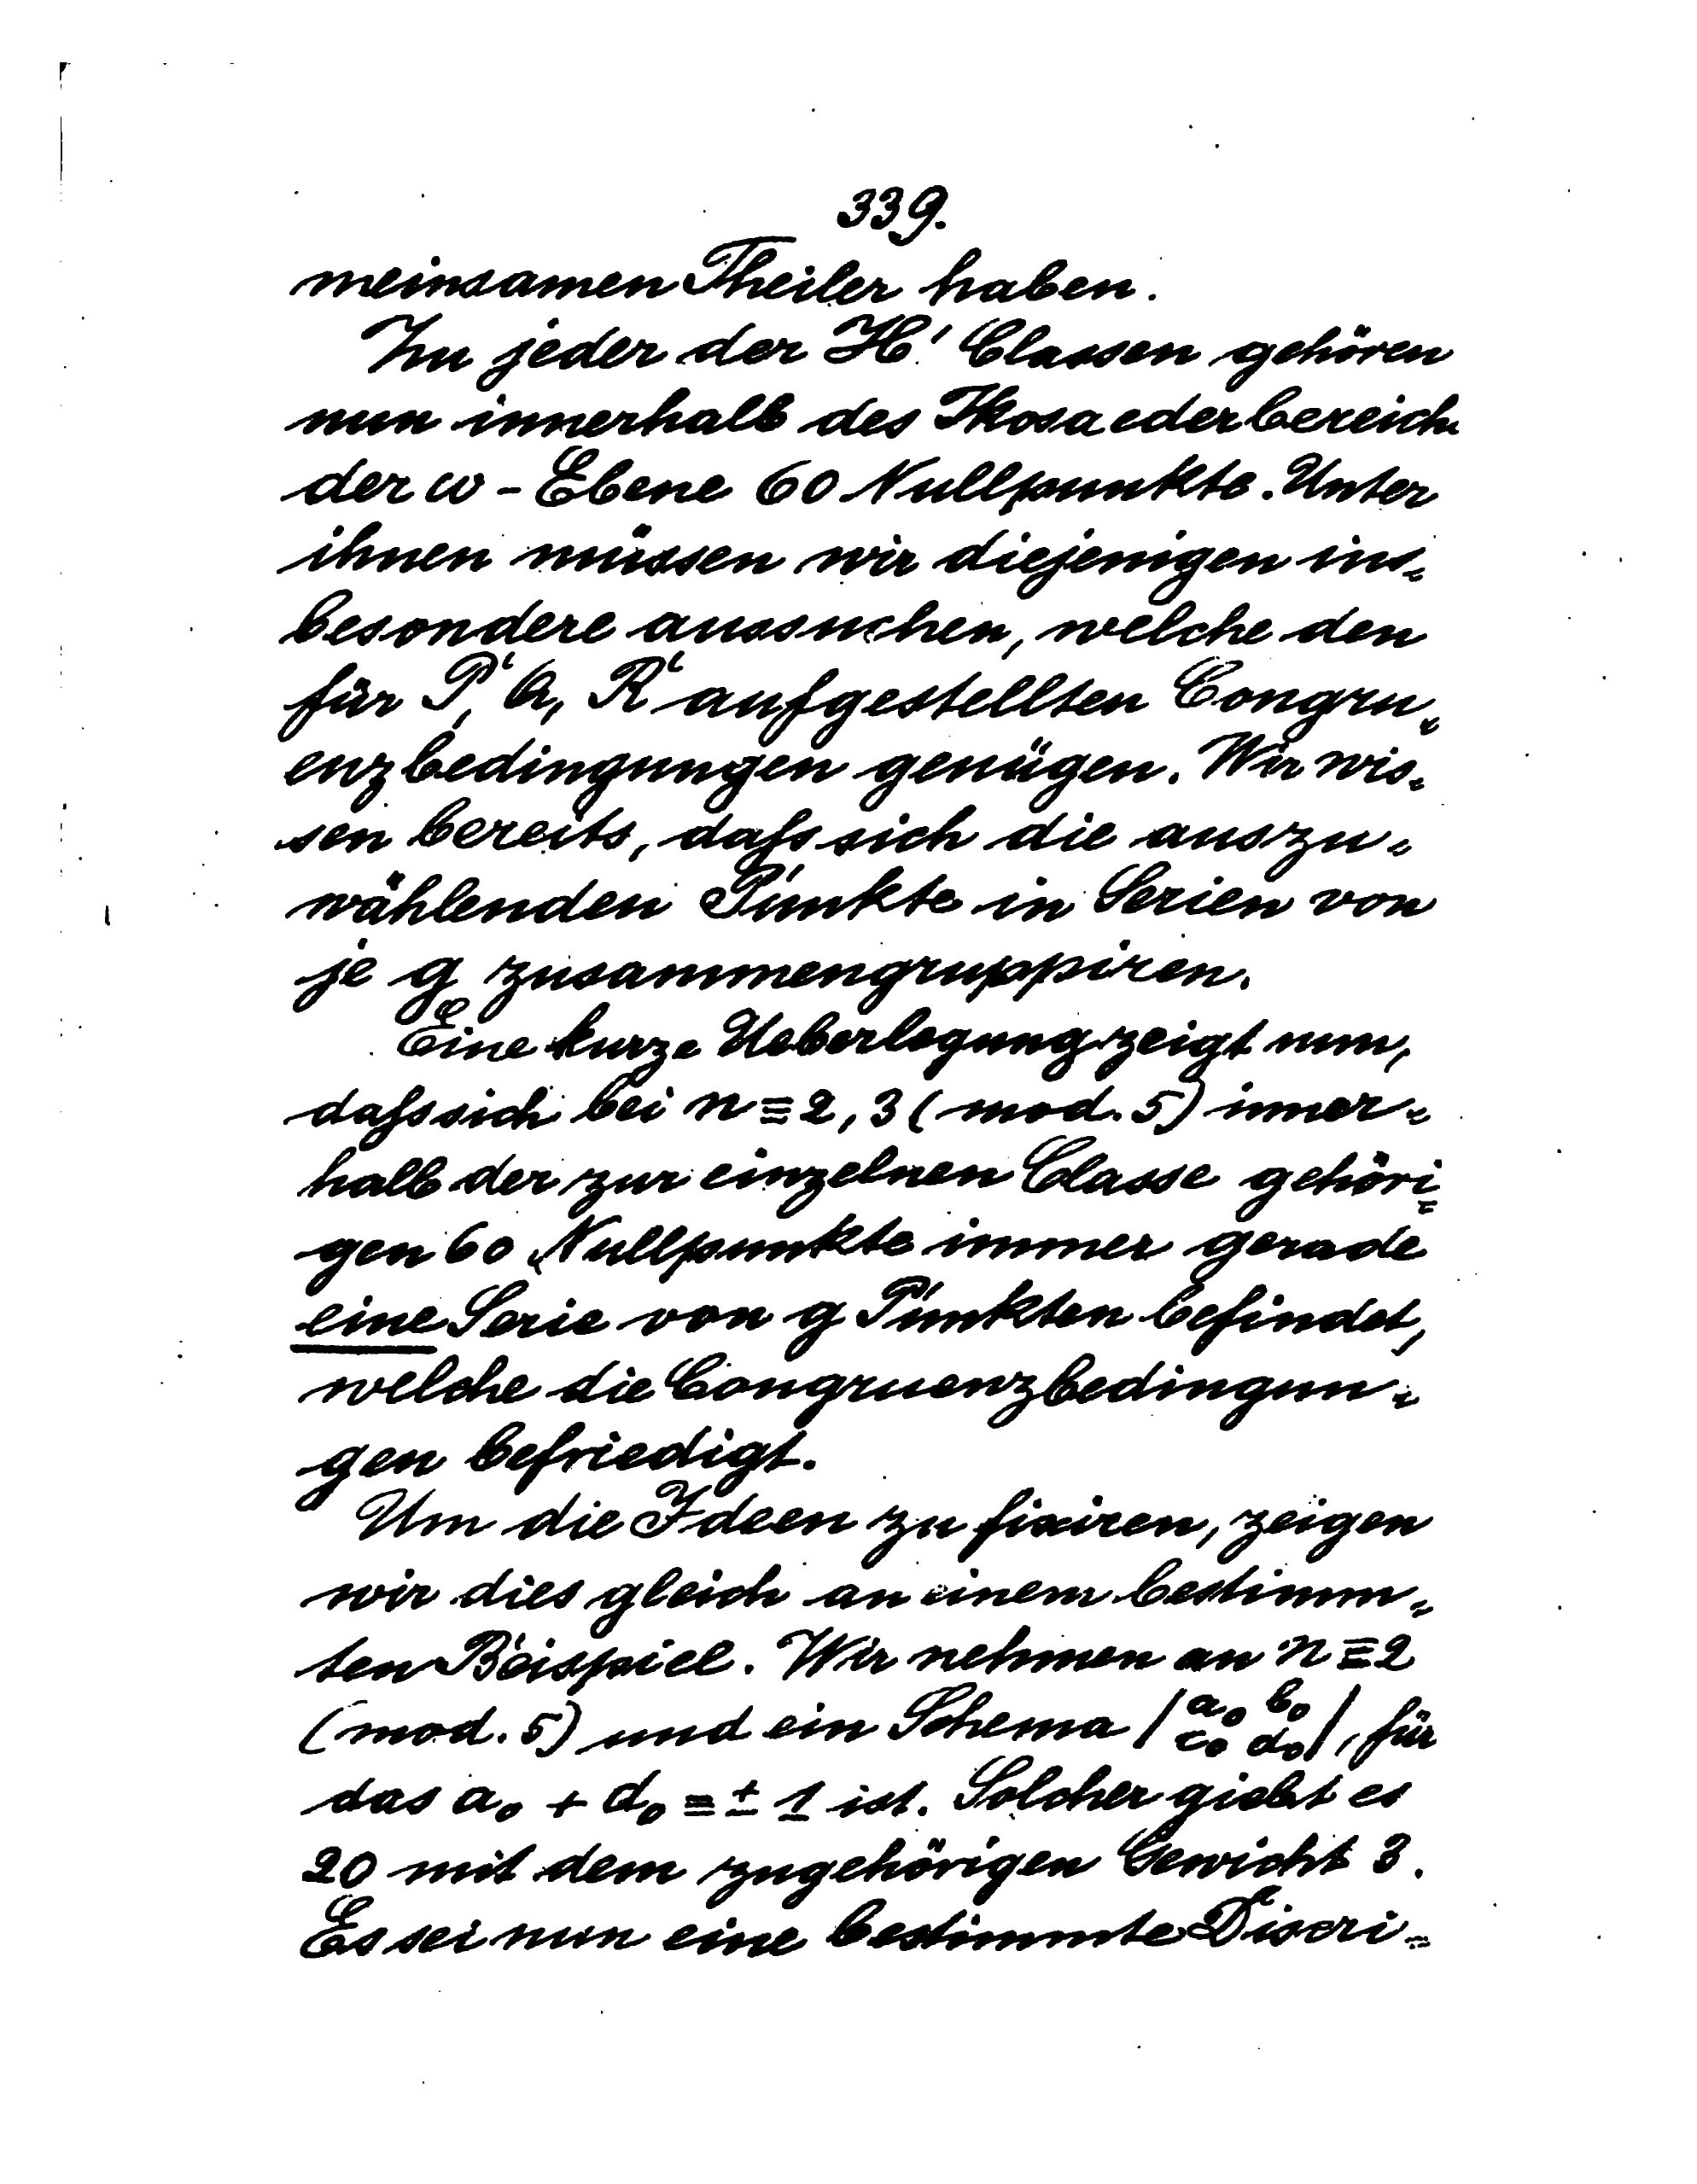 339.
meinsamen Theiler haben.
Zu jeder der H' Classen gehören
nun innerhalb des Ikosaederbereichs
der ω-Ebene 60 Nullpunkte. Unter
ihnen müssen wir diejenigen ins=
besondere aussuchen, welche den
für P', Q, R' aufgestellten Congru=
enzbedingungen genügen. Wir wis=
sen bereits, dafs sich die auszu=
wählenden Punkte in Serien von
je g zusammengruppiren.
Eine kurze Ueberlegung zeigt nun,
dafs sich bei n ≡ 2, 3 (mod. 5) inner=
halb der zur einzelnen Classe gehöri=
gen 60 Nullpunkte immer gerade
eine Serie von g Punkten befindet,
welche die Congruenzbedingun=
gen befriedigt.
Um die Ideen zu fixiren, zeigen
wir dies gleich an einem bestimm=
ten Beispiel. Wir nehmen an n ≡ 2
(mod. 5) und ein Schema | a₀ b₀ / c₀ d₀ |, für
das a₀ + d₀ ≡ ± 1 ist. Solcher giebt es
20 mit dem zugehörigen Gewicht 3.
Es sei nun eine bestimmte Discri=